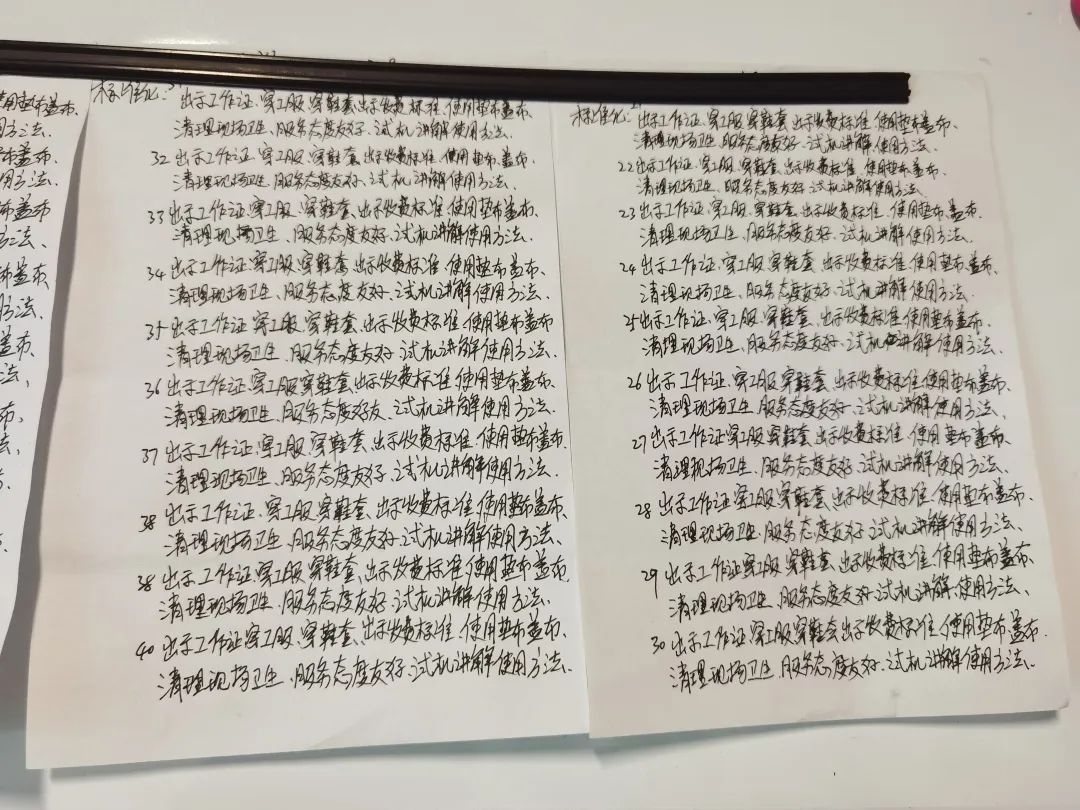 用垫布盖布、
用方法、
布盖布、
用方法、
布盖布
方法、
布盖布、
方法、
盖布、
法、
布、
法、
布、
标准化:31 出示工作证、穿工服、穿鞋套、出示收费标准、使用垫布盖布、
清理现场卫生、服务态度友好、试机讲解使用方法、
32 出示工作证、穿工服、穿鞋套、出示收费标准、使用垫布盖布、
清理现场卫生、服务态度友好、试机讲解使用方法、
33 出示工作证、穿工服、穿鞋套、出示收费标准、使用垫布盖布、
清理现场卫生、服务态度友好、试机讲解使用方法、
34 出示工作证、穿工服、穿鞋套、出示收费标准、使用垫布盖布、
清理现场卫生、服务态度友好、试机讲解使用方法、
35 出示工作证、穿工服、穿鞋套、出示收费标准、使用垫布盖布
清理现场卫生、服务态度友好、试机讲解使用方法、
36 出示工作证、穿工服、穿鞋套、出示收费标准、使用垫布盖布、
清理现场卫生、服务态度好友、试机讲解使用方法、
37 出示工作证、穿工服、穿鞋套、出示收费标准、使用垫布盖布、
清理现场卫生、服务态度友好、试机讲解使用方法、
38 出示工作证、穿工服、穿鞋套、出示收费标准、使用垫布盖布、
清理现场卫生、服务态度友好、试机讲解使用方法、
38 出示工作证、穿工服、穿鞋套、出示收费标准、使用垫布盖布、
清理现场卫生、服务态度友好、试机讲解使用方法、
40 出示工作证、穿工服、穿鞋套、出示收费标准、使用垫布盖布、
清理现场卫生、服务态度友好、试机讲解使用方法、
标准化:21 出示工作证、穿工服、穿鞋套、出示收费标准、使用垫布盖布、
清理现场卫生、服务态度友好、试机讲解使用方法、
22 出示工作证、穿工服、穿鞋套、出示收费标准、使用垫布盖布、
清理现场卫生、服务态度友好、试机讲解使用方法、
23 出示工作证、穿工服、穿鞋套、出示收费标准、使用垫布盖布、
清理现场卫生、服务态度友好、试机讲解使用方法、
24 出示工作证、穿工服、穿鞋套、出示收费标准、使用垫布盖布、
清理现场卫生、服务态度友好、试机讲解使用方法、
25 出示工作证、穿工服、穿鞋套、出示收费标准、使用垫布盖布、
清理现场卫生、服务态度友好、试机讲解使用方法、
26 出示工作证、穿工服、穿鞋套、出示收费标准、使用垫布盖布、
清理现场卫生、服务态度友好、试机讲解使用方法、
27 出示工作证、穿工服、穿鞋套、出示收费标准、使用垫布盖布、
清理现场卫生、服务态度友好、试机讲解使用方法、
28 出示工作证、穿工服、穿鞋套、出示收费标准、使用垫布盖布、
清理现场卫生、服务态度友好、试机讲解使用方法、
29 出示工作证、穿工服、穿鞋套、出示收费标准、使用垫布盖布、
清理现场卫生、服务态度友好、试机讲解使用方法、
30 出示工作证、穿工服、穿鞋套、出示收费标准、使用垫布盖布、
清理现场卫生、服务态度友好、试机讲解使用方法、